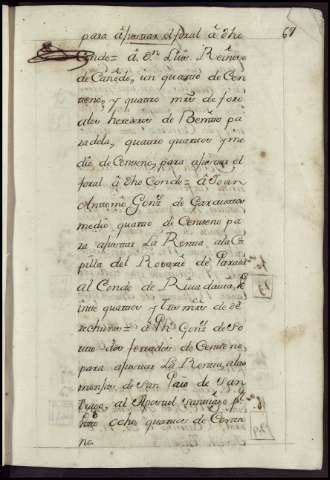 para apartar el foral a dho 67
Conde= a Dn. Luis Reinoso
de Canedo, un quarto de Cen
teno, y quatro mrs. de foro
a los herederos de Benito pa
radela, quatro quartos y me
dio de Centeno, para apartar el
foral a dho Conde= a Juan
Antonio Gonz. de
medio quarto de Centeno pa
ra apartar La Renta, a la Ca
pilla del Rosario de Parada
al Conde de Rivadavia,
inte quartos y tres mrs. de de
rechuras= a Ph. Gonz. de So
uto dos ferrados de Centeno,
para apartar La Renta, a las
monjas de San Paio de San
tiago, al Apostol Santiago
ocho quartos de Cente
no